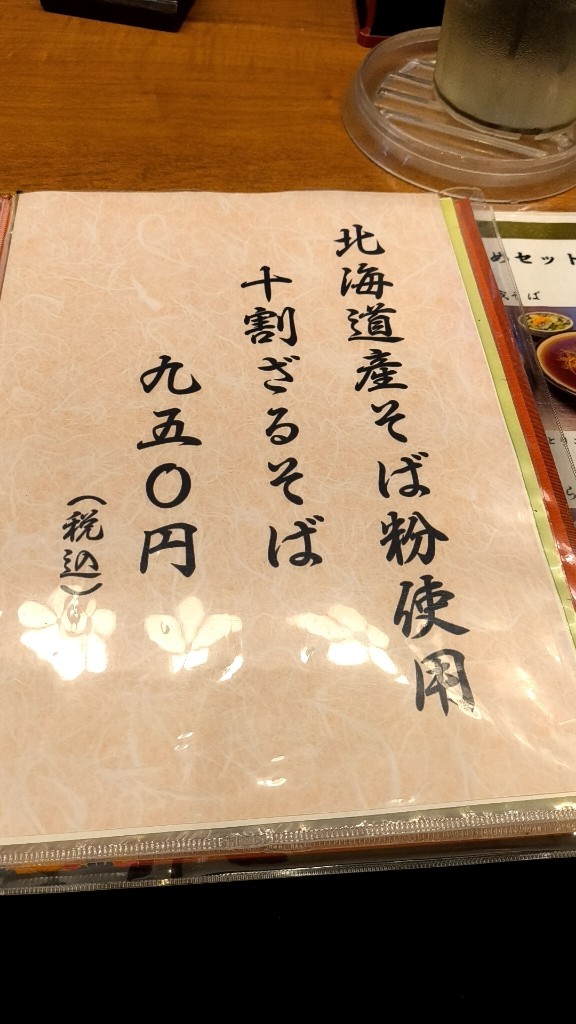 北海道産そば粉使用
十割ざるそば
九五〇円
（税込）
めセット
そば